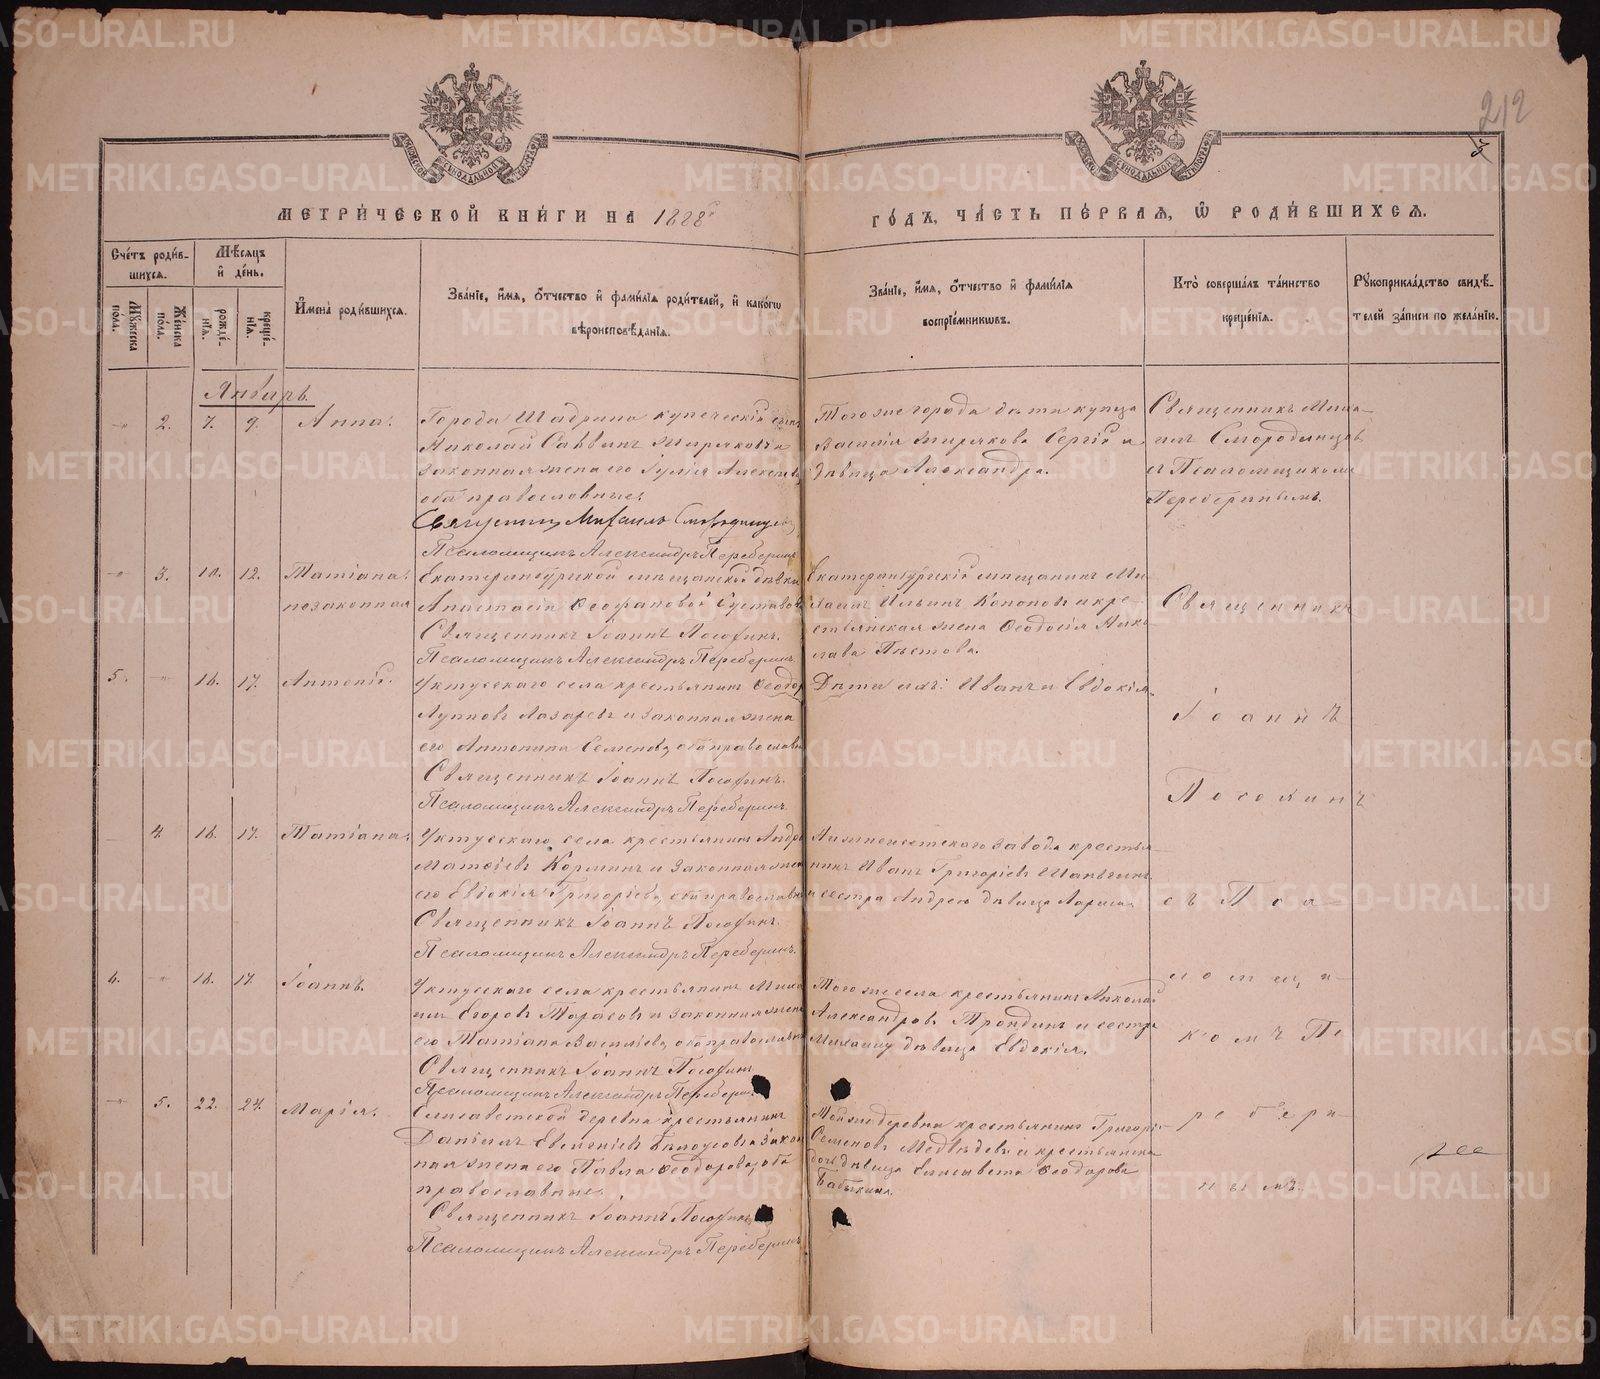 212
МЕТРИЧЕСКОЙ КНИГИ НА 1888 ГОДЪ, ЧАСТЬ ПЕРВАЯ, Ѡ РОДИВШИХСЯ.
Счетъ родив-
шихся.
Мужеска
пола.
Женска
пола.
Мѣсяцъ
и день.
рожде-
нїя.
креще-
нїя.
Имена родившихся.
Званїе, имя, отчество и фамилїя родителей, и какогѡ
вѣроисповѣданїя.
Званїе, имя, отчество и фамилїя
воспрїемникѡвъ.
Кто совершалъ таинство
крещенїя.
Рукоприкладство свидѣ-
телей записи по желанїю.
Январь.
2. 7. 9. Анна.
Города Шадрина купеческій сынъ
Николай Саввинъ Мыряковъ и
законная жена его Іулія Алексѣева
оба православные.
Священникъ Михаилъ Смородинцевъ
Псаломщикъ Александръ Переберинъ
Тогоже города дѣти купца
Василія Мырякова Сергій и
дѣвица Александра.
Священникъ Миха-
илъ Смородинцевъ
съ Псаломщикомъ
Переберинымъ.
3. 10. 12. Татіана.
незаконная
Екатеринбургской мѣщанской дѣвки
Анастасіи Ѳеофановой
Священникъ Іоаннъ Посохинъ.
Псаломщикъ Александръ Переберинъ.
Екатеринбургскій мѣщанинъ Ми-
хаилъ Ильинъ Кононовъ и кре-
стьянская жена Ѳеодосія
Пѣстова.
5. 16. 17. Антоній.
Уктусскаго села крестьянинъ Ѳеодоръ
Лупповъ Лазаревъ и законная жена
его Антонина Семенова, оба православн
Священникъ Іоаннъ Посохинъ.
Псаломщикъ Александръ Переберинъ.
Дѣти ихъ: Иванъ и Евдокія.
4. 16. 17. Татіана.
Уктусскаго села крестьянинъ Андрей
Матѳіевъ Корминъ и законная жена
его Евдокія Григоріева, оба православн
Священникъ Іоаннъ Посохинъ.
Псаломщикъ Александръ Переберинъ.
Нижнеисетскаго завода крестья-
нинъ Иванъ Григоріевъ
и сестра Андрею дѣвица Лариса.
6. 16. 17. Іоаннъ.
Уктусскаго села крестьянинъ Миха
илъ Егоровъ Тарасовъ и законная жена
его Татіана Васильева, оба православн
Священникъ Іоаннъ Посохинъ
Псаломщикъ Александръ Переберинъ.
Тогоже села крестьянинъ Николай
Александровъ Трондинъ и сестра
Михаилу дѣвица Евдокія.
5. 22. 24. Марія.
Елисаветской деревни крестьянинъ
Даніилъ Евменіевъ Бѣлоусовъ и закон
ная жена его Павла Ѳеодорова, оба
православные.
Священникъ Іоаннъ Посохинъ
Псаломщикъ Александръ Переберинъ
Тойже деревни крестьянинъ Григорій
Семеновъ Медвѣдевъ и крестьянская
дочь дѣвица Елисавета Ѳеодорова
Бабкина.
Священникъ
Іоаннъ
Посохинъ
съ Пса-
ломщи-
комъ Пе-
ребери-
нымъ.